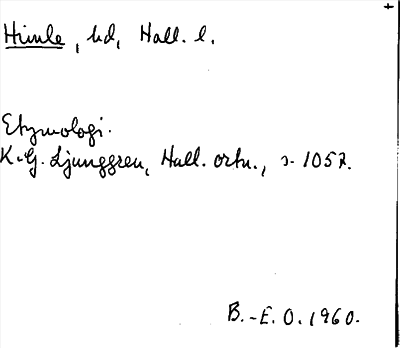 Himle, hd, Hall. l.
Etymologi.
K.-G. Ljunggren, Hall. ortn., s. 105 f.
B.-E. O. 1960.